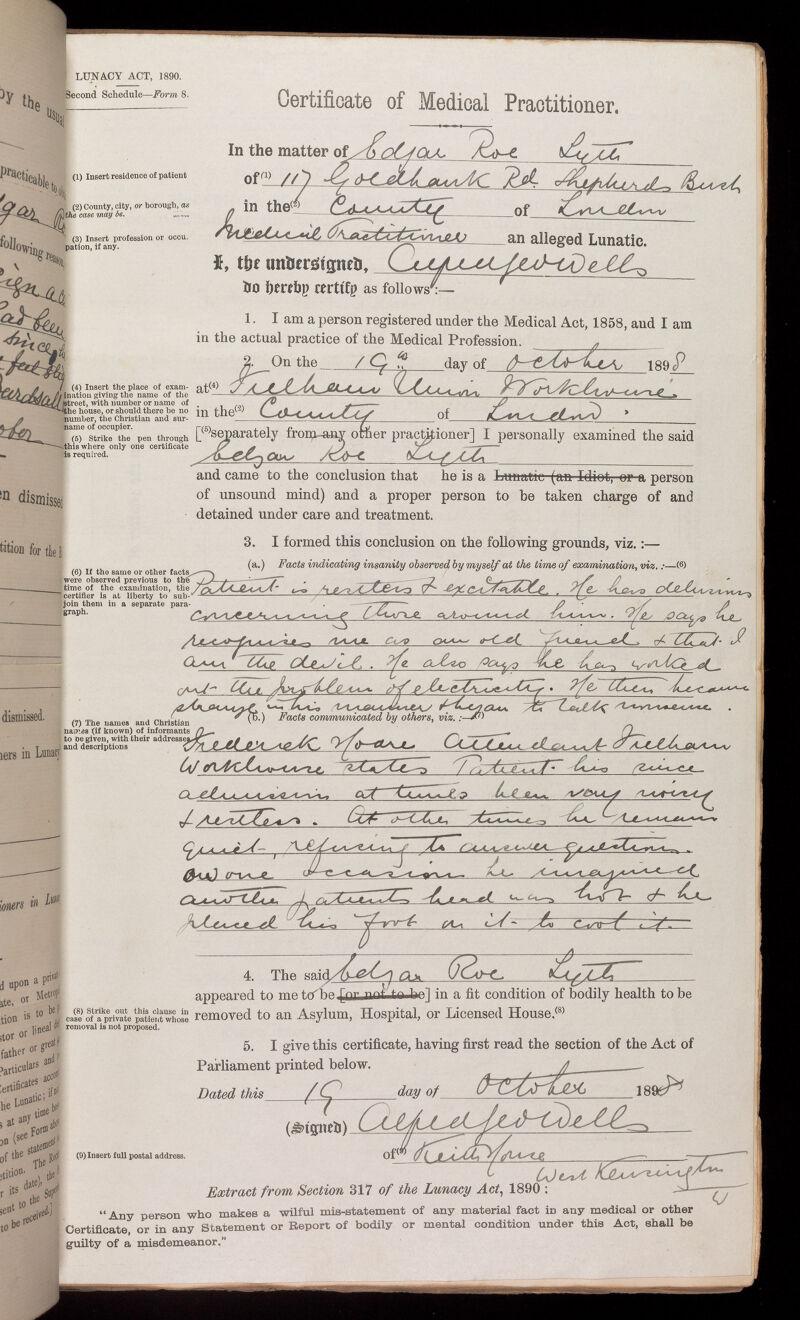 LUNACY ACT, 1890.
Second Schedule—Form 8.
Certificate of Medical Practitioner.
In the matter of Edgar Roe Lyth
(1) Insert residence of patient
of(1) 117 Goldhawk Rd. Shepherds Bush
(2) County, city, or borough, as
the case may be.
in the(2) County of London
(3) Insert profession or occu-
pation, if any.
Medical Practitioner an alleged Lunatic.
I, the undersigned, Alfred Geo Wells
do hereby certify as follows:—
1. I am a person registered under the Medical Act, 1858, and I am
in the actual practice of the Medical Profession.
2. On the 19th day of October 1898
(4) Insert the place of exam-
ination giving the name of the
street, with number or name of
the house, or should there be no
number, the Christian and sur-
name of occupier.
at(4) Fulham Union Workhouse
in the(2) County of London
(5) Strike the pen through
this where only one certificate
is required.
[(5)separately from any other practitioner] I personally examined the said
Edgar Roe Lyth
and came to the conclusion that he is a Lunatic (an Idiot, or a person
of unsound mind) and a proper person to be taken charge of and
detained under care and treatment.
3. I formed this conclusion on the following grounds, viz. :—
(a.) Facts indicating insanity observed by myself at the time of examination, viz. :—(6)
(6) If the same or other facts
were observed previous to the
time of the examination, the
certifier is at liberty to sub-
join them in a separate para-
graph.
Patient is restless & excitable. He has delusions
concerning those around him. He says he
recognises me as an old friend & that I
am the devil. He also says he has worked
out the problem of electricity. He then became
strange in his manner & began to talk nonsense.
(b.) Facts communicated by others, viz. :—(7)
(7) The names and Christian
names (if known) of informants
to be given, with their addresses
and descriptions
Frederick Hoare Attendant Fulham
Workhouse states Patient his since
admission at times been very noisy
& restless. At other times he remains
quiet, refusing to answer questions.
On one occasion he imagined
another patients head was hot & he
placed his foot on it to cool it
4. The said Edgar Roe Lyth
appeared to me to be [or not to be] in a fit condition of bodily health to be
removed to an Asylum, Hospital, or Licensed House.(8)
(8) Strike out this clause in
case of a private patient whose
removal is not proposed.
5. I give this certificate, having first read the section of the Act of
Parliament printed below.
Dated this 19 day of October 1898
(Signed) Alfred Geo Wells
(9) Insert full postal address.
of(9) Keith House
West Kensington
W
Extract from Section 317 of the Lunacy Act, 1890 :
"Any person who makes a wilful mis-statement of any material fact in any medical or other
Certificate, or in any Statement or Report of bodily or mental condition under this Act, shall be
guilty of a misdemeanor."